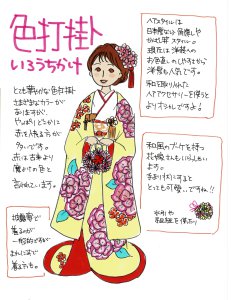 色打掛
いろうちかけ
とても華やかな色打掛
さまざまなカラーが
ありますが、
やっぱりどこかに
赤を入れる方が
多いです。
赤は古来より
魔よけの色と
言われています。
地毛で
着るのが
一般的ですが
まれに
着る方も。
ヘアスタイルは
日本髪ならぬ
スタイル。
現在は洋装への
お色直しのしやすさから
洋髪も人気です。
和を取り入れた
ヘアアクセサリーを使うと
よりオシャレですよ!
和風のブーケを持つ
花嫁さんもいらっしゃい
ます。
とっても可愛いですね!!
水引や
和紐を使ったり